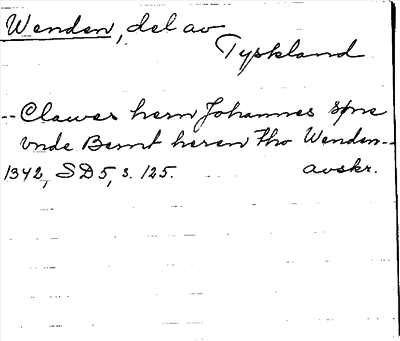 Wenden, del av
Tyskland
-- Clawes hern Johannes sone
vnde Bernt heren tho Wenden --
1342, SD 5, s. 125. avskr.